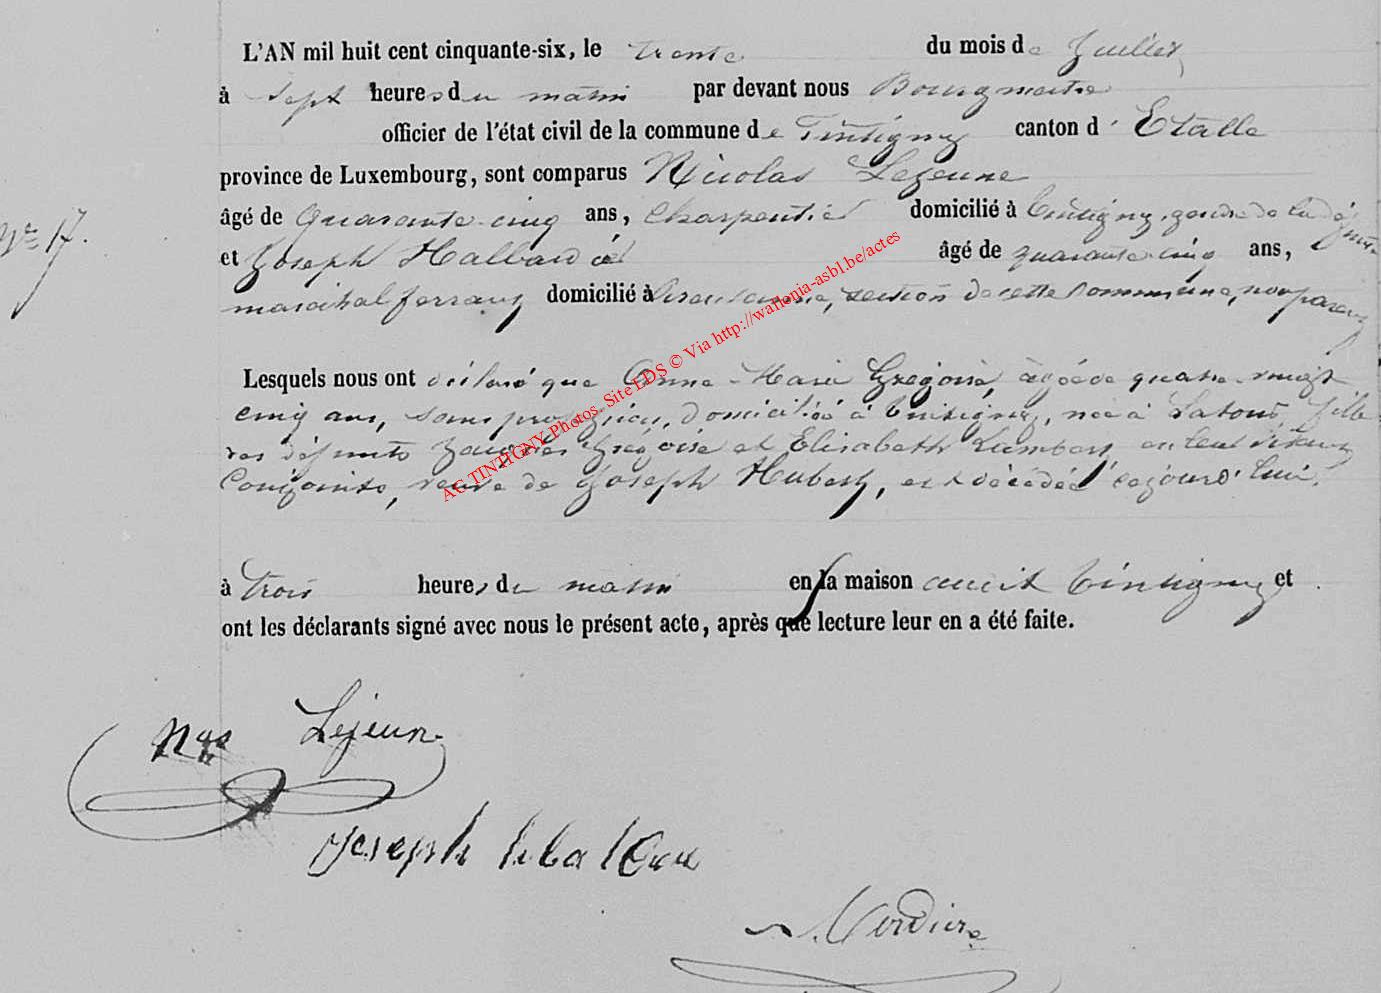 L'AN mil huit cent cinquante-six, le trente du mois de Juillet
à sept heures du matin par devant nous Bourgmestre
officier de l'état civil de la commune de Tintigny canton d'Etalle
province de Luxembourg, sont comparus Nicolas Lejeune
âgé de quarante cinq ans, Charpentier domicilié à Tintigny, gendre de la défunte
N° 17.
et Joseph Halbardié âgé de quarante cinq ans,
maréchal ferrant domicilié à section de cette commune, non parent
Lesquels nous ont déclaré que Anne-Marie Grégoire, âgée de quatre-vingt
cinq ans, sans profession, domiciliée à Tintigny, née à Latour, fille
des défunts Jacques Grégoire et Elisabeth Lambert, en leur vivant
Conjoints, veuve de Joseph Hubert, est décédée cejourd'hui,
à trois heures du matin en la maison audit Tintigny et
ont les déclarants signé avec nous le présent acte, après que lecture leur en a été faite.
Nas Lejeune
Joseph
AC TINTIGNY Photos. Site LDS © Via http://wallonia-asbl.be/actes